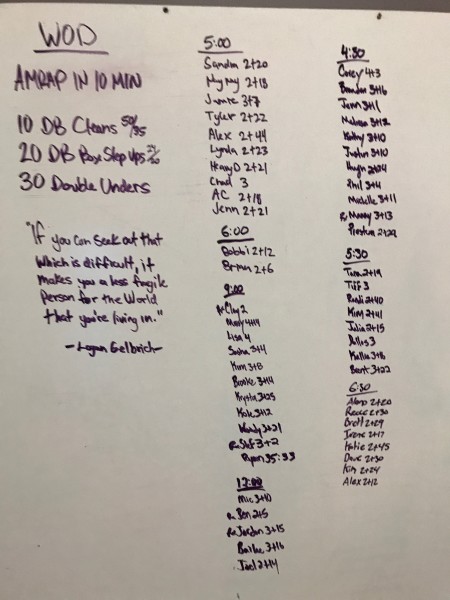 WOD
AMRAP IN 10 MIN
10 DB Cleans 50/35
20 DB Box Step Ups 24/20
30 Double Unders
"If you can seek out that
which is difficult, it
makes you a less fragile
person for the world
that you're living in."
- Logan Gelbrich -
5:00
Sandra 2+20
My My 2+18
Jamie 3+7
Tyler 2+22
Alex 2+44
Lynda 2+23
Heavy D 2+21
Chad 3
AC 2+18
Jenn 2+21
6:00
Bobbi 2+12
Brian 2+6
9:00
Rx Clay 2
4+14
Lisa 4
Sasha 3+4
Kim 3+8
Brooke 3+14
Krysta 3+25
Kole 3+12
Wendy 3+21
Rx Stef 3+2
Ryan 35:33
12:00
Mic 3+40
Rx Ben 2+5
Rx Jordan 3+15
Bailee 3+16
Joel 2+14
4:30
Corey 4+3
Brandon 3+16
Jenn 3+1
Melissa 3+12
Kathy 3+10
Justin 3+10
Hugh 2+24
Phil 3+4
Michelle 3+11
Rx Manny 3+13
Preston 2+29
5:30
Tara 2+19
Tiff 3
2+40
Kim 2+41
Julia 2+15
3
Kallie 3+18
Brent 3+22
6:30
2+20
Reece 2+30
Brett 2+29
Irene 2+17
Katie 2+45
Dave 2+30
Kim 2+24
Alex 2+12